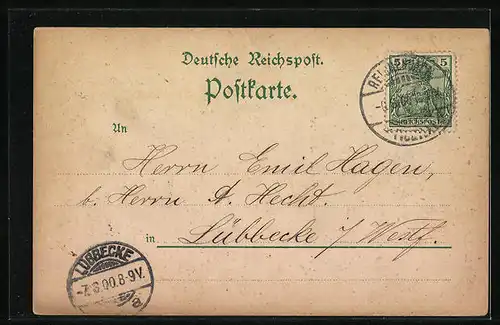 Deutsche Reichspost.
Postkarte.
5 5
REICHSPOST
An
Herrn Emil Hagen,
b. Herrn A. Hecht.
in Lübbecke i/ Westf.
LÜBBECKE
-7.6.00.8-9V.
a